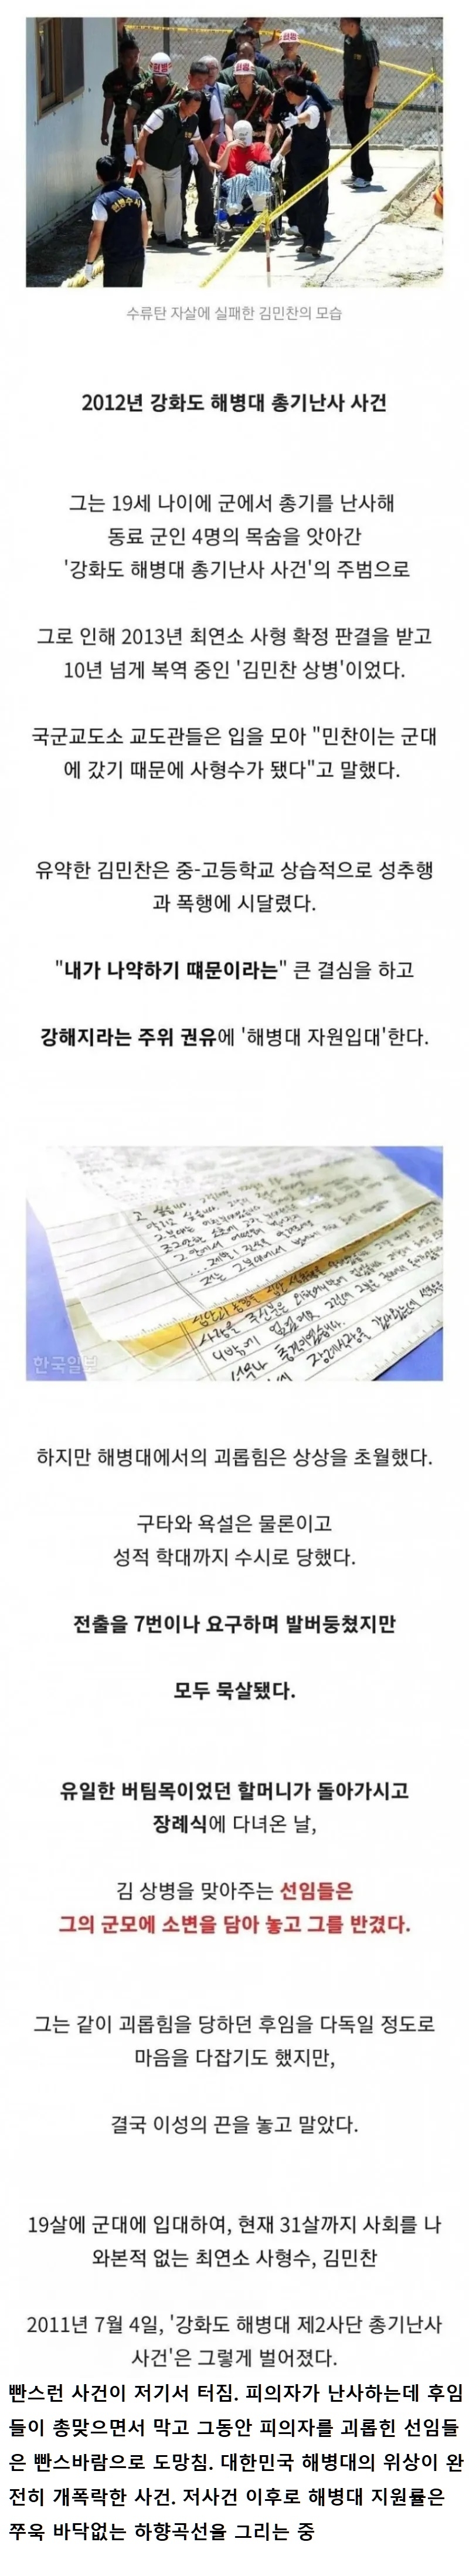 헌병
헌병
헌병수사
수류탄 자살에 실패한 김민찬의 모습
2012년 강화도 해병대 총기난사 사건
그는 19세 나이에 군에서 총기를 난사해
동료 군인 4명의 목숨을 앗아간
'강화도 해병대 총기난사 사건'의 주범으로
그로 인해 2013년 최연소 사형 확정 판결을 받고
10년 넘게 복역 중인 '김민찬 상병'이었다.
국군교도소 교도관들은 입을 모아 "민찬이는 군대
에 갔기 때문에 사형수가 됐다"고 말했다.
유약한 김민찬은 중-고등학교 상습적으로 성추행
과 폭행에 시달렸다.
"내가 나약하기 떄문이라는" 큰 결심을 하고
강해지라는 주위 권유에 '해병대 자원입대'한다.
한국일보
하지만 해병대에서의 괴롭힘은 상상을 초월했다.
구타와 욕설은 물론이고
성적 학대까지 수시로 당했다.
전출을 7번이나 요구하며 발버둥쳤지만
모두 묵살됐다.
유일한 버팀목이었던 할머니가 돌아가시고
장례식에 다녀온 날,
김 상병을 맞아주는 선임들은
그의 군모에 소변을 담아 놓고 그를 반겼다.
그는 같이 괴롭힘을 당하던 후임을 다독일 정도로
마음을 다잡기도 했지만,
결국 이성의 끈을 놓고 말았다.
19살에 군대에 입대하여, 현재 31살까지 사회를 나
와본적 없는 최연소 사형수, 김민찬
2011년 7월 4일, '강화도 해병대 제2사단 총기난사
사건'은 그렇게 벌어졌다.
빤스런 사건이 저기서 터짐. 피의자가 난사하는데 후임
들이 총맞으면서 막고 그동안 피의자를 괴롭힌 선임들
은 빤스바람으로 도망침. 대한민국 해병대의 위상이 완
전히 개폭락한 사건. 저사건 이후로 해병대 지원률은
쭈욱 바닥없는 하향곡선을 그리는 중